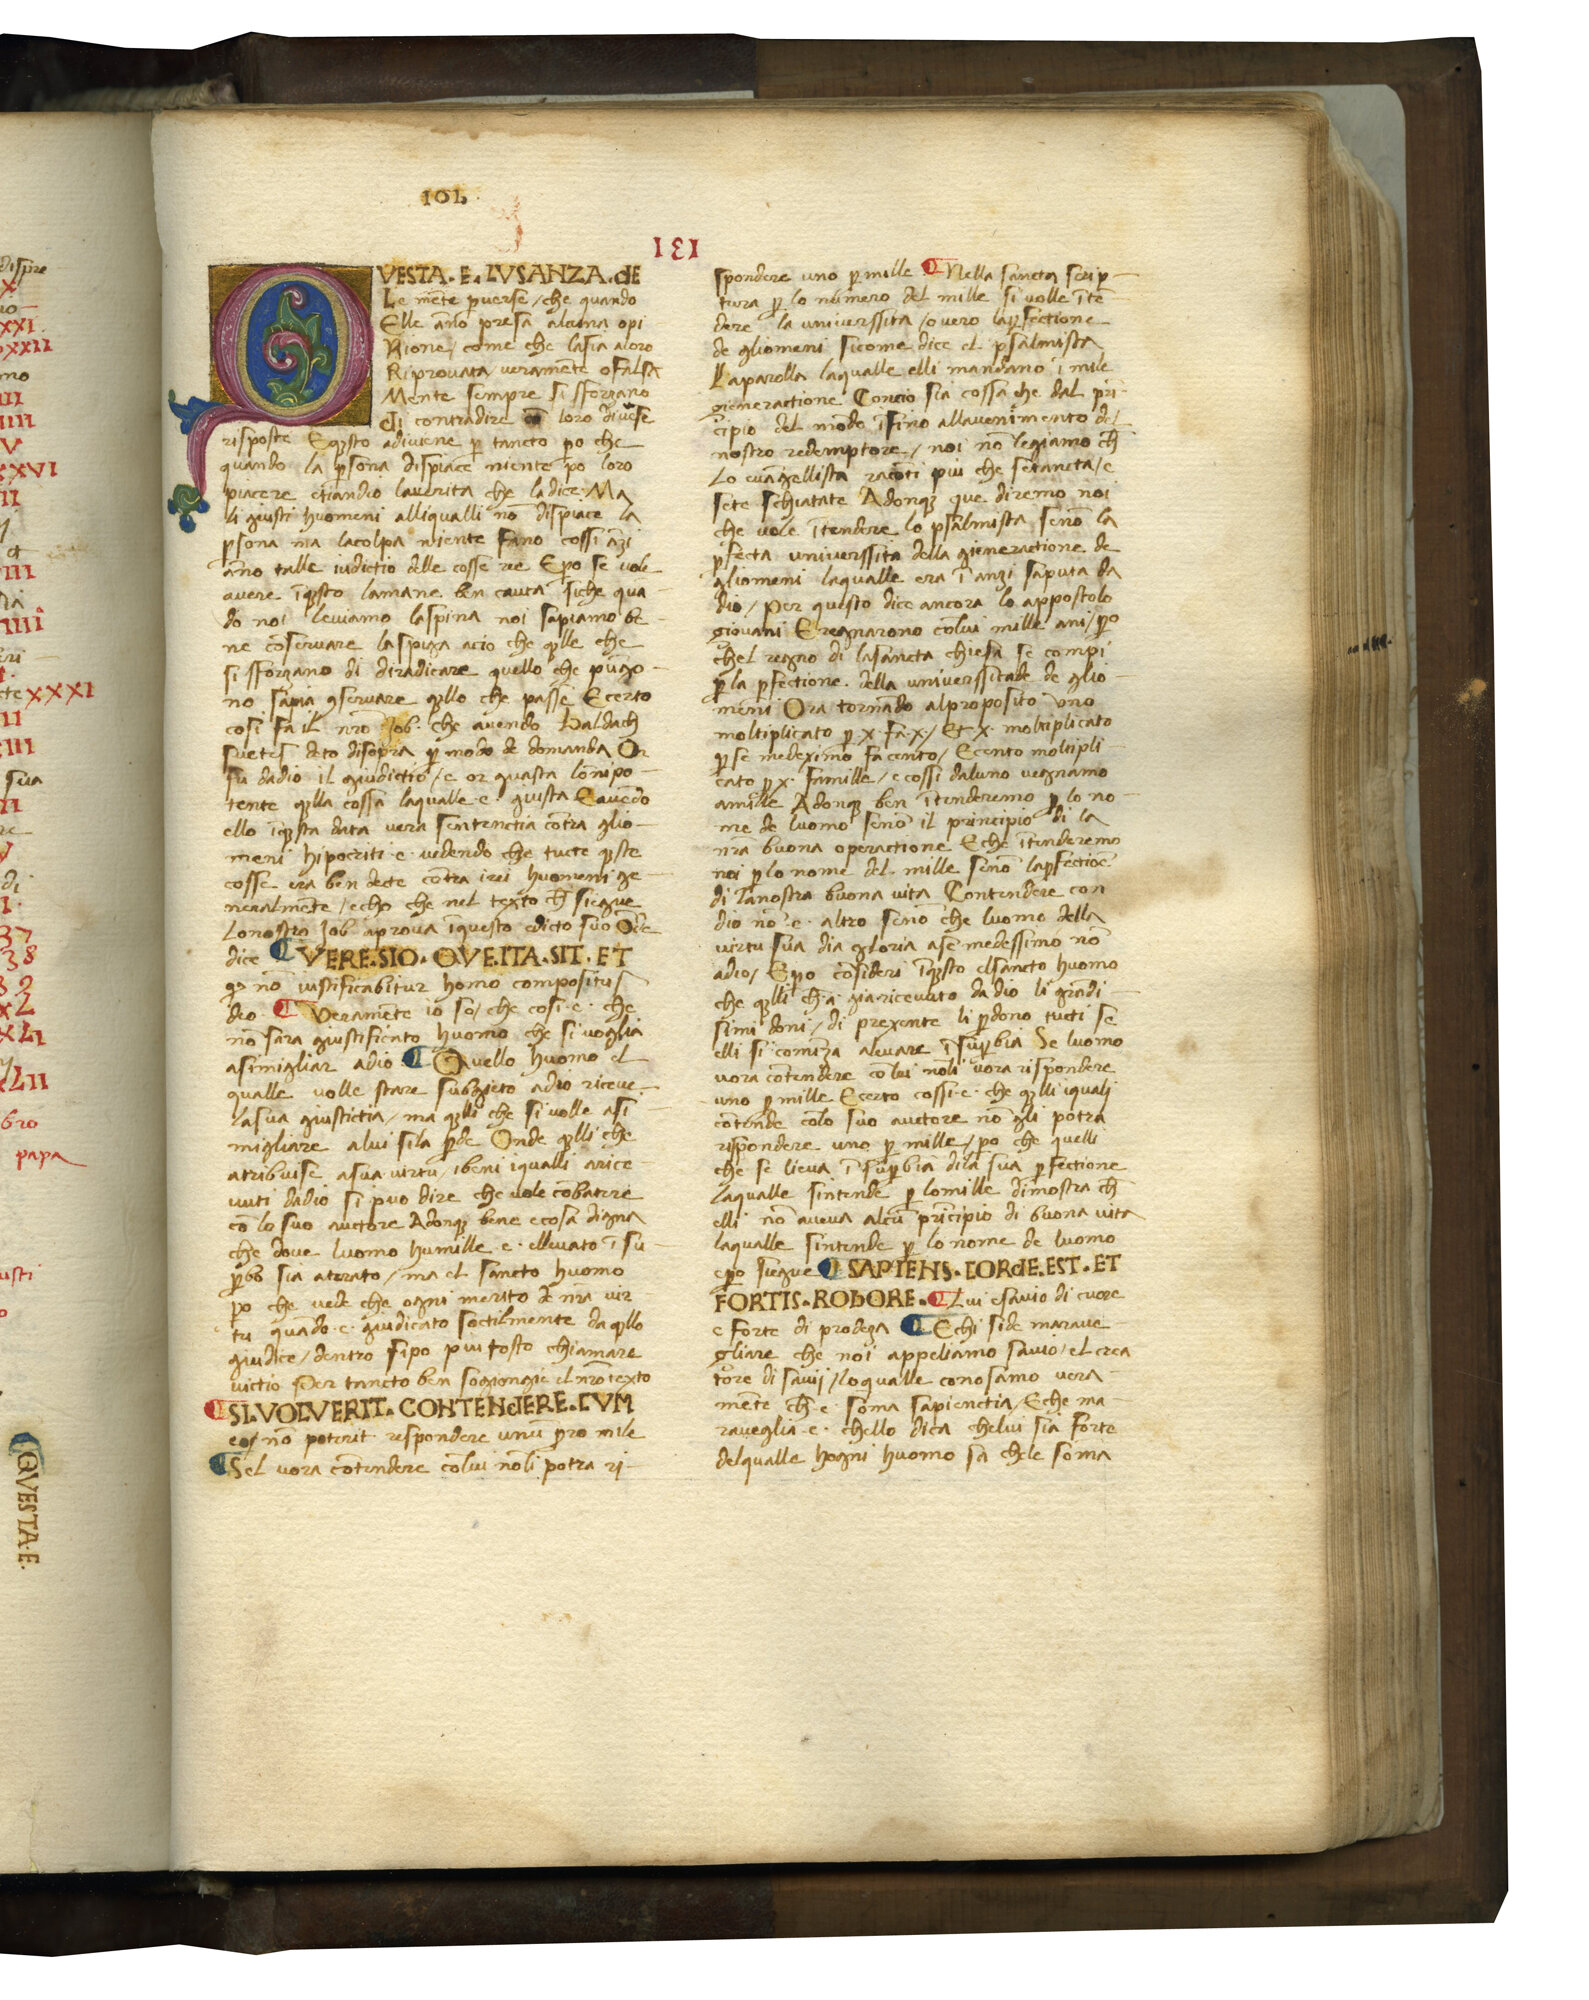 101
131
QVESTA·E·LVSANZA·dE
Le mēte pverse / che quando
Elle āno presa alcuna opi
Nione / come che lasia aloro
Riprovata / veramēte o falsa
Mente sempre si sforzano
di contradire loro divese
risposte Eqsto adiviene p tancto po che
quando la psona dispiace niente po loro
piacere etiandio laverita che la dice Ma
li giusti huomeni alliqualli nō dispiace la
psona ma lacolpa niente fano cossi āzi
āno talle iudictio delle cosse rie Epo se vole
avere īqsto lamane ben cauta siche quā
do noi leviamo laspina noi sapiamo be
ne cōservare laspiga acio che qlle che
si sforzano di diradicare quello che pugo
no sapia 9servare qllo che passe Ecerto
cosi fa il nrō Job· che avendo Baldach
Suetes deto disopra p modo de domanda Or
fu dadio il giudictio / e or guasta lōnipo
tente qlla cossa laqualle e· giusta Eavēdo
ello īqsta data vera sentenctia cōtra glio
meni hipocriti· e· vedendo che tucte qste
cosse era ben decte cōtra irei huomeni ge
neralmēte / echo che nel texto ch̄ siegue
Lonostro Job aprova īquesto edicto suo Ōde
dice ¶ VERE·SIO·QVE·ITA·SIT·ET
nō iustificabitur homo compositus
deo· ¶ Veramēte io so / che cosi·e· che
nō sara giustificato huomo che si voglia
asimigliar adio ¶ Quello huomo el
qualle volle stare subgieto adio riceve
lasua giustictia / ma qlli che si volle asi
migliare alui sila pde Onde qlli che
atribuise asua virtu / ibeni iqualli arice
vuti dadio si puo dire che vole cōbatere
cō lo suo auctore Adonq bene ecosa digna
che dove luomo humille·e· ellevato ī su
pbō sia aterato / ma el sancto huomo
po che vede che ogni merito de nrā vir
tu quādo·e· giudicato soctilmente da qllo
giudice / dentro sipo piu tosto chiamare
victio Per tancto ben sogiongie el nrō texto
¶ SI·VOLVERIT·CONTENdERE·CVM
eo / nō poterit· respondere unū pro mile
¶ Sel vora cōtendere cōlui nōli potra ri
spondere uno p mille ¶ Nella sancta scrip
tura p lo nūmero del mille si volle īte
dere la universsita / overo lapfectione
de gliomeni sicome dice el psalmista
Laparolla laqualle elli mandano ī mile
gieneractione Concio sia cossa che dal pri
cipio del mōdo īfino allavenimento del
nostro redemptore / noi nō legiamo ch̄
Lo evāgellista racōti piu che setancta / e
sete schiatate Adonq que diremo noi
che vole ītendere lo psalmista senō la
pfecta universsita della gieneractione de
gliomeni laqualle era ī anzi saputa da
dio / Per questo dice ancora lo appostolo
giovani Eregnarono cōlui mille ani / po
chel regno di lasancta chiesa se compi
p la pfectione· della universsitade de glio
meni Ora tornādo alproposito uno
moltiplicato p·x·fa·x· / Et·x· moltiplicato
p se medeximo fa cento / Ecento moltipli
cato p·x· famille / e cossi daluno vegnamo
amille Adonq ben ītenderemo p lo no
me de luomo senō il principio di la
nrā buona operactione Eche ītenderemo
noi plo nome del· mille senō lapfectiōe
di lanostra buona vita Contendere con
dio nō·e· altro senō che luomo della
virtu sua dia gloria ase medessimo nō
adio / Epo cōsideri īqsto elsancto huomo
che qlli ch̄·a· gia·ricevuto da dio li grādi
simi doni / di presente li pdono tucti se
elli si comīza alevare ī supbia Se luomo
vora cōtendere cō lui nōli vora rispondere
uno p mille Ecerto cossi·e· che qlli iquali
cōtende cōlo suo auctore nō gli potra
rispondere uno p mille / po che quelli
che se lieva ī supbia dila sua pfectione
laqualle sintende p lomille dimostra ch̄
elli nō aveva alcū principio di buona vita
laqualle sintende p lo nome de luomo
epo siegue ¶ SAPIENS·CORdE·EST·ET
FORTIS·ROBORE· ¶ Lui esavio di cuore
e forte di prodeza ¶ Echi side marave
gliare che noi appeliamo savio / el crea
tore di savij / loqualle conosamo vera
mēte ch̄·e· soma sapienctia / Eche ma
raveglia·e· chello dica chelui sia forte
delqualle hogni huomo sa chele soma
QVESTA·E·
XXXI
papa